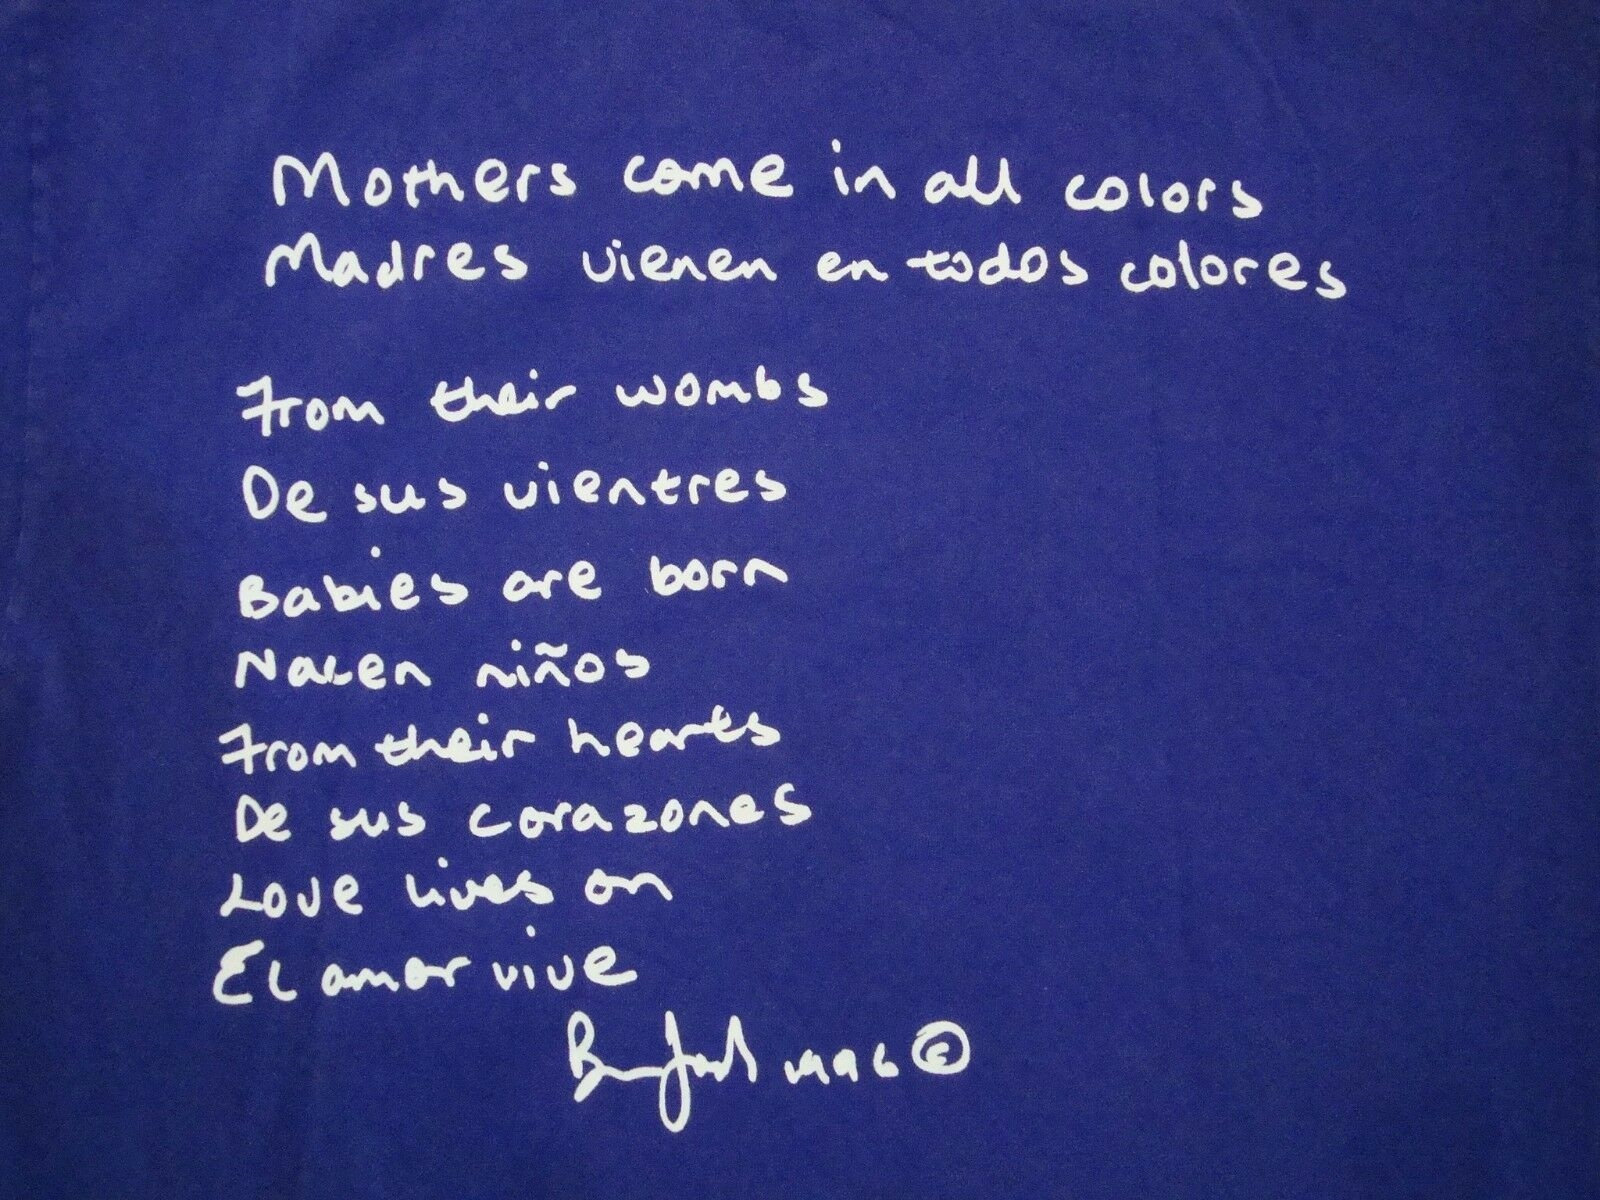 Mothers come in all colors
Madres vienen en todos colores
From their wombs
De sus vientres
Babies are born
Nacen niños
From their hearts
De sus corazones
Love lives on
El amor vive
1996 ©